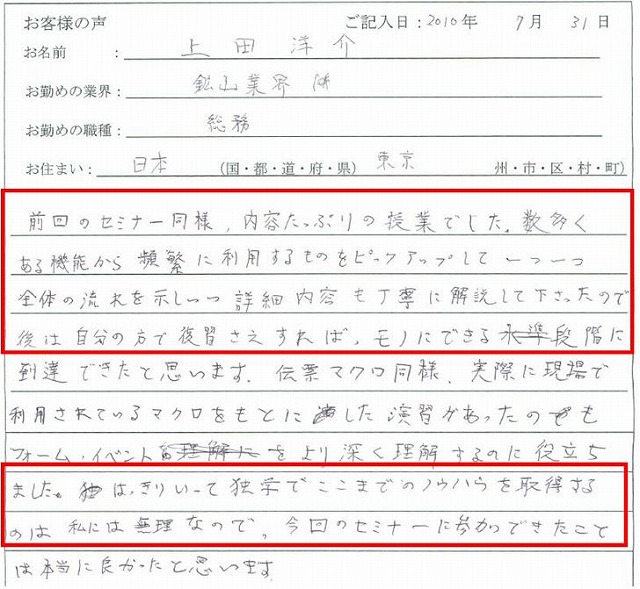 お客様の声 ご記入日：2010年 7月 31日
お名前 ： 上田 洋介
お勤めの業界： 鉱山業界
お勤めの職種： 総務
お住まい： 日本 (国・都・道・府・県) 東京 州・市・区・村・町)
前回のセミナー同様，内容たっぷりの授業でした。数多く
ある機能から頻繁に利用するものをピックアップして一つ一つ
全体の流れを示しつつ詳細内容も丁寧に解説して下さったので
後は自分の方で復習さえすれば，モノにできる水準段階に
到達できたと思います．伝票マクロ同様，実際に現場で
利用されているマクロをもとにした演習があったのでも
フォーム，イベント 理解に をより深く理解するのに役立ち
ました。はっきりいって独学でここまでのノウハウを取得する
のは私には無理なので，今回のセミナーに参加できたこと
は本当に良かったと思います．